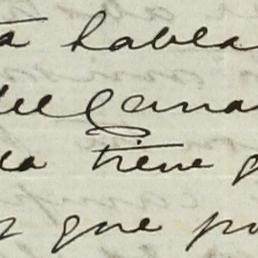 ta habla
del Cana
da tiene
que po